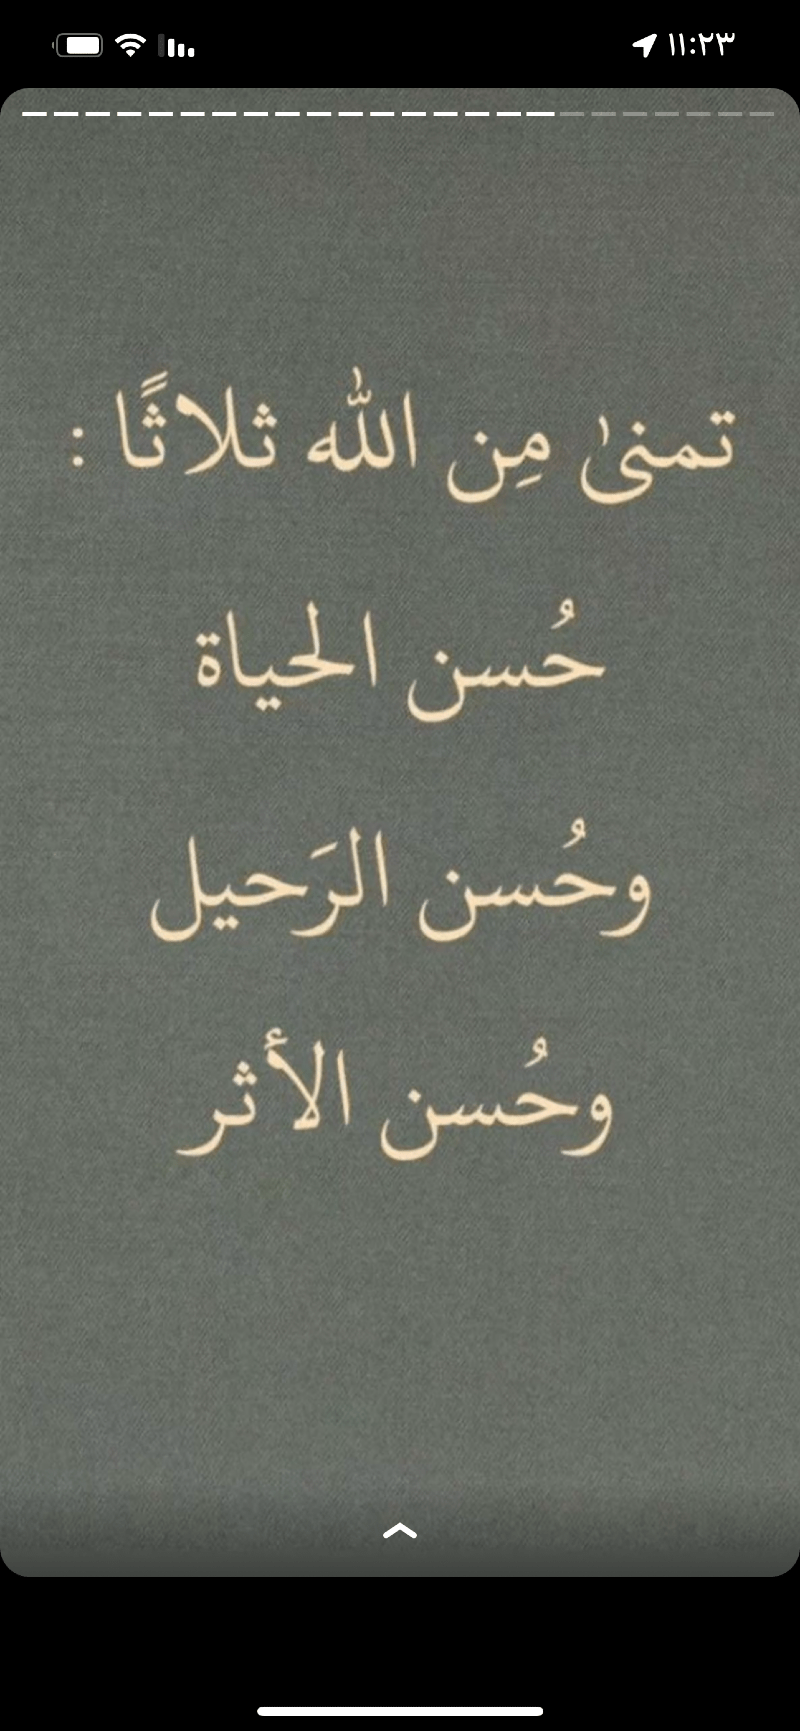 ١١:٢٣
تمنىٰ مِن الله ثلاثًا :
حُسن الحياة
وحُسن الرَحيل
وحُسن الأثر